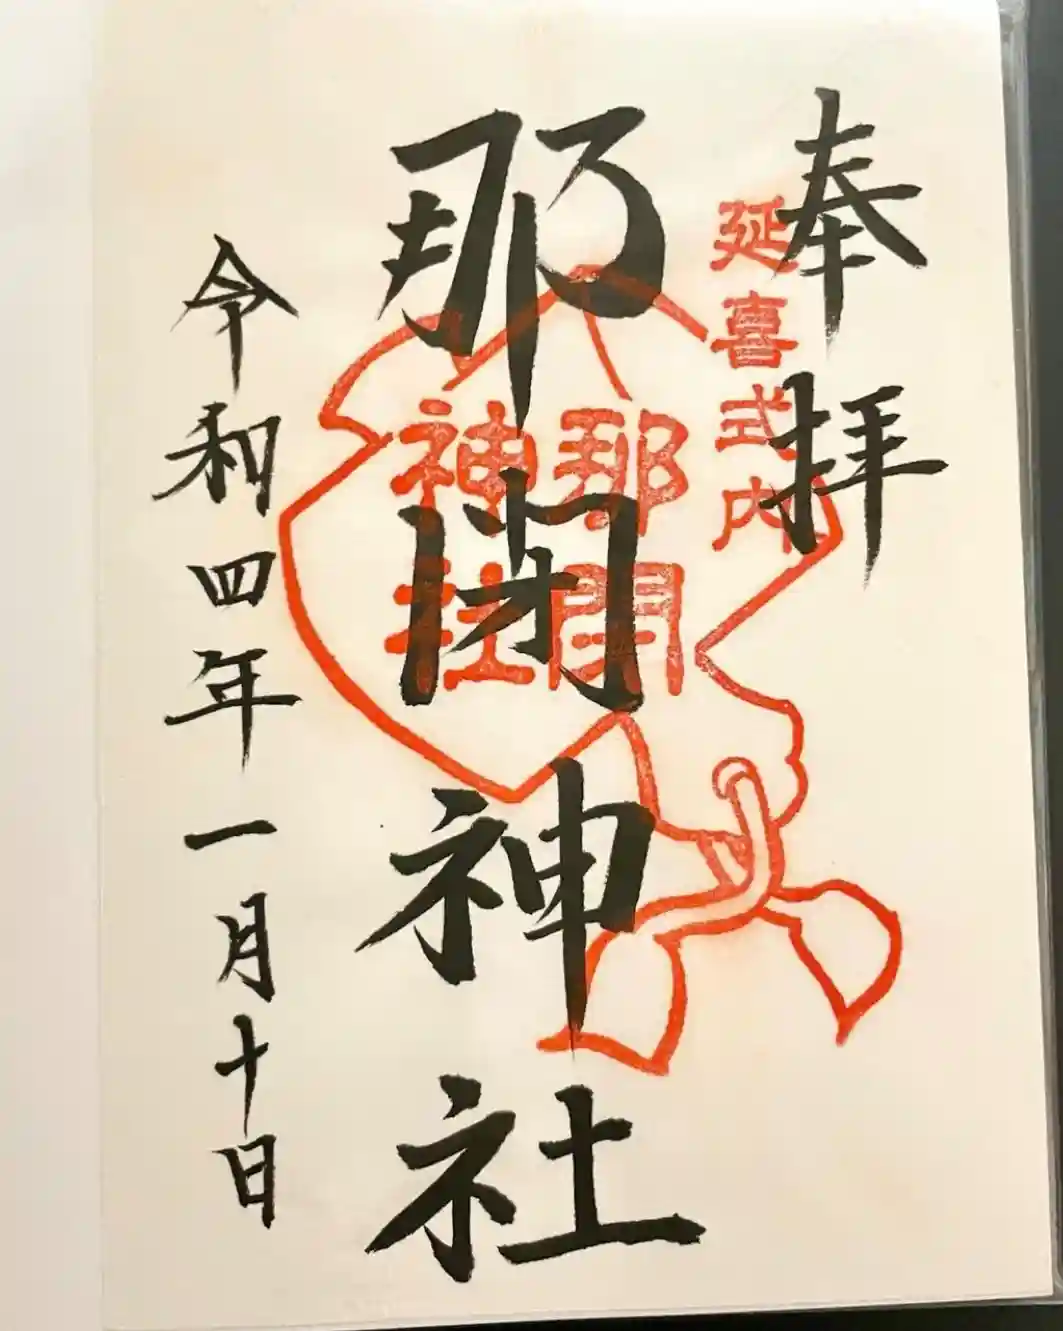 奉拝
延喜式内
那閉神社
那閉
神社
令和四年一月十日